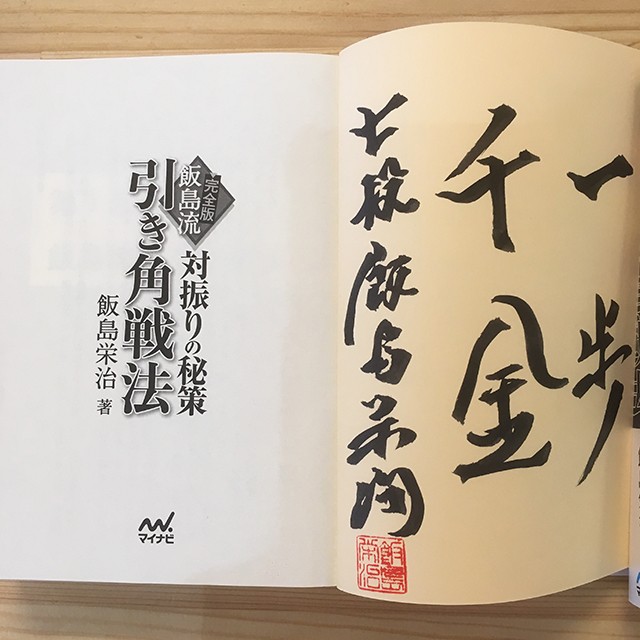 対振りの秘策
完全版
飯島流
引き角戦法
飯島栄治 著
マイナビ
一歩
千金
七段 飯島栄治
飯島
栄治